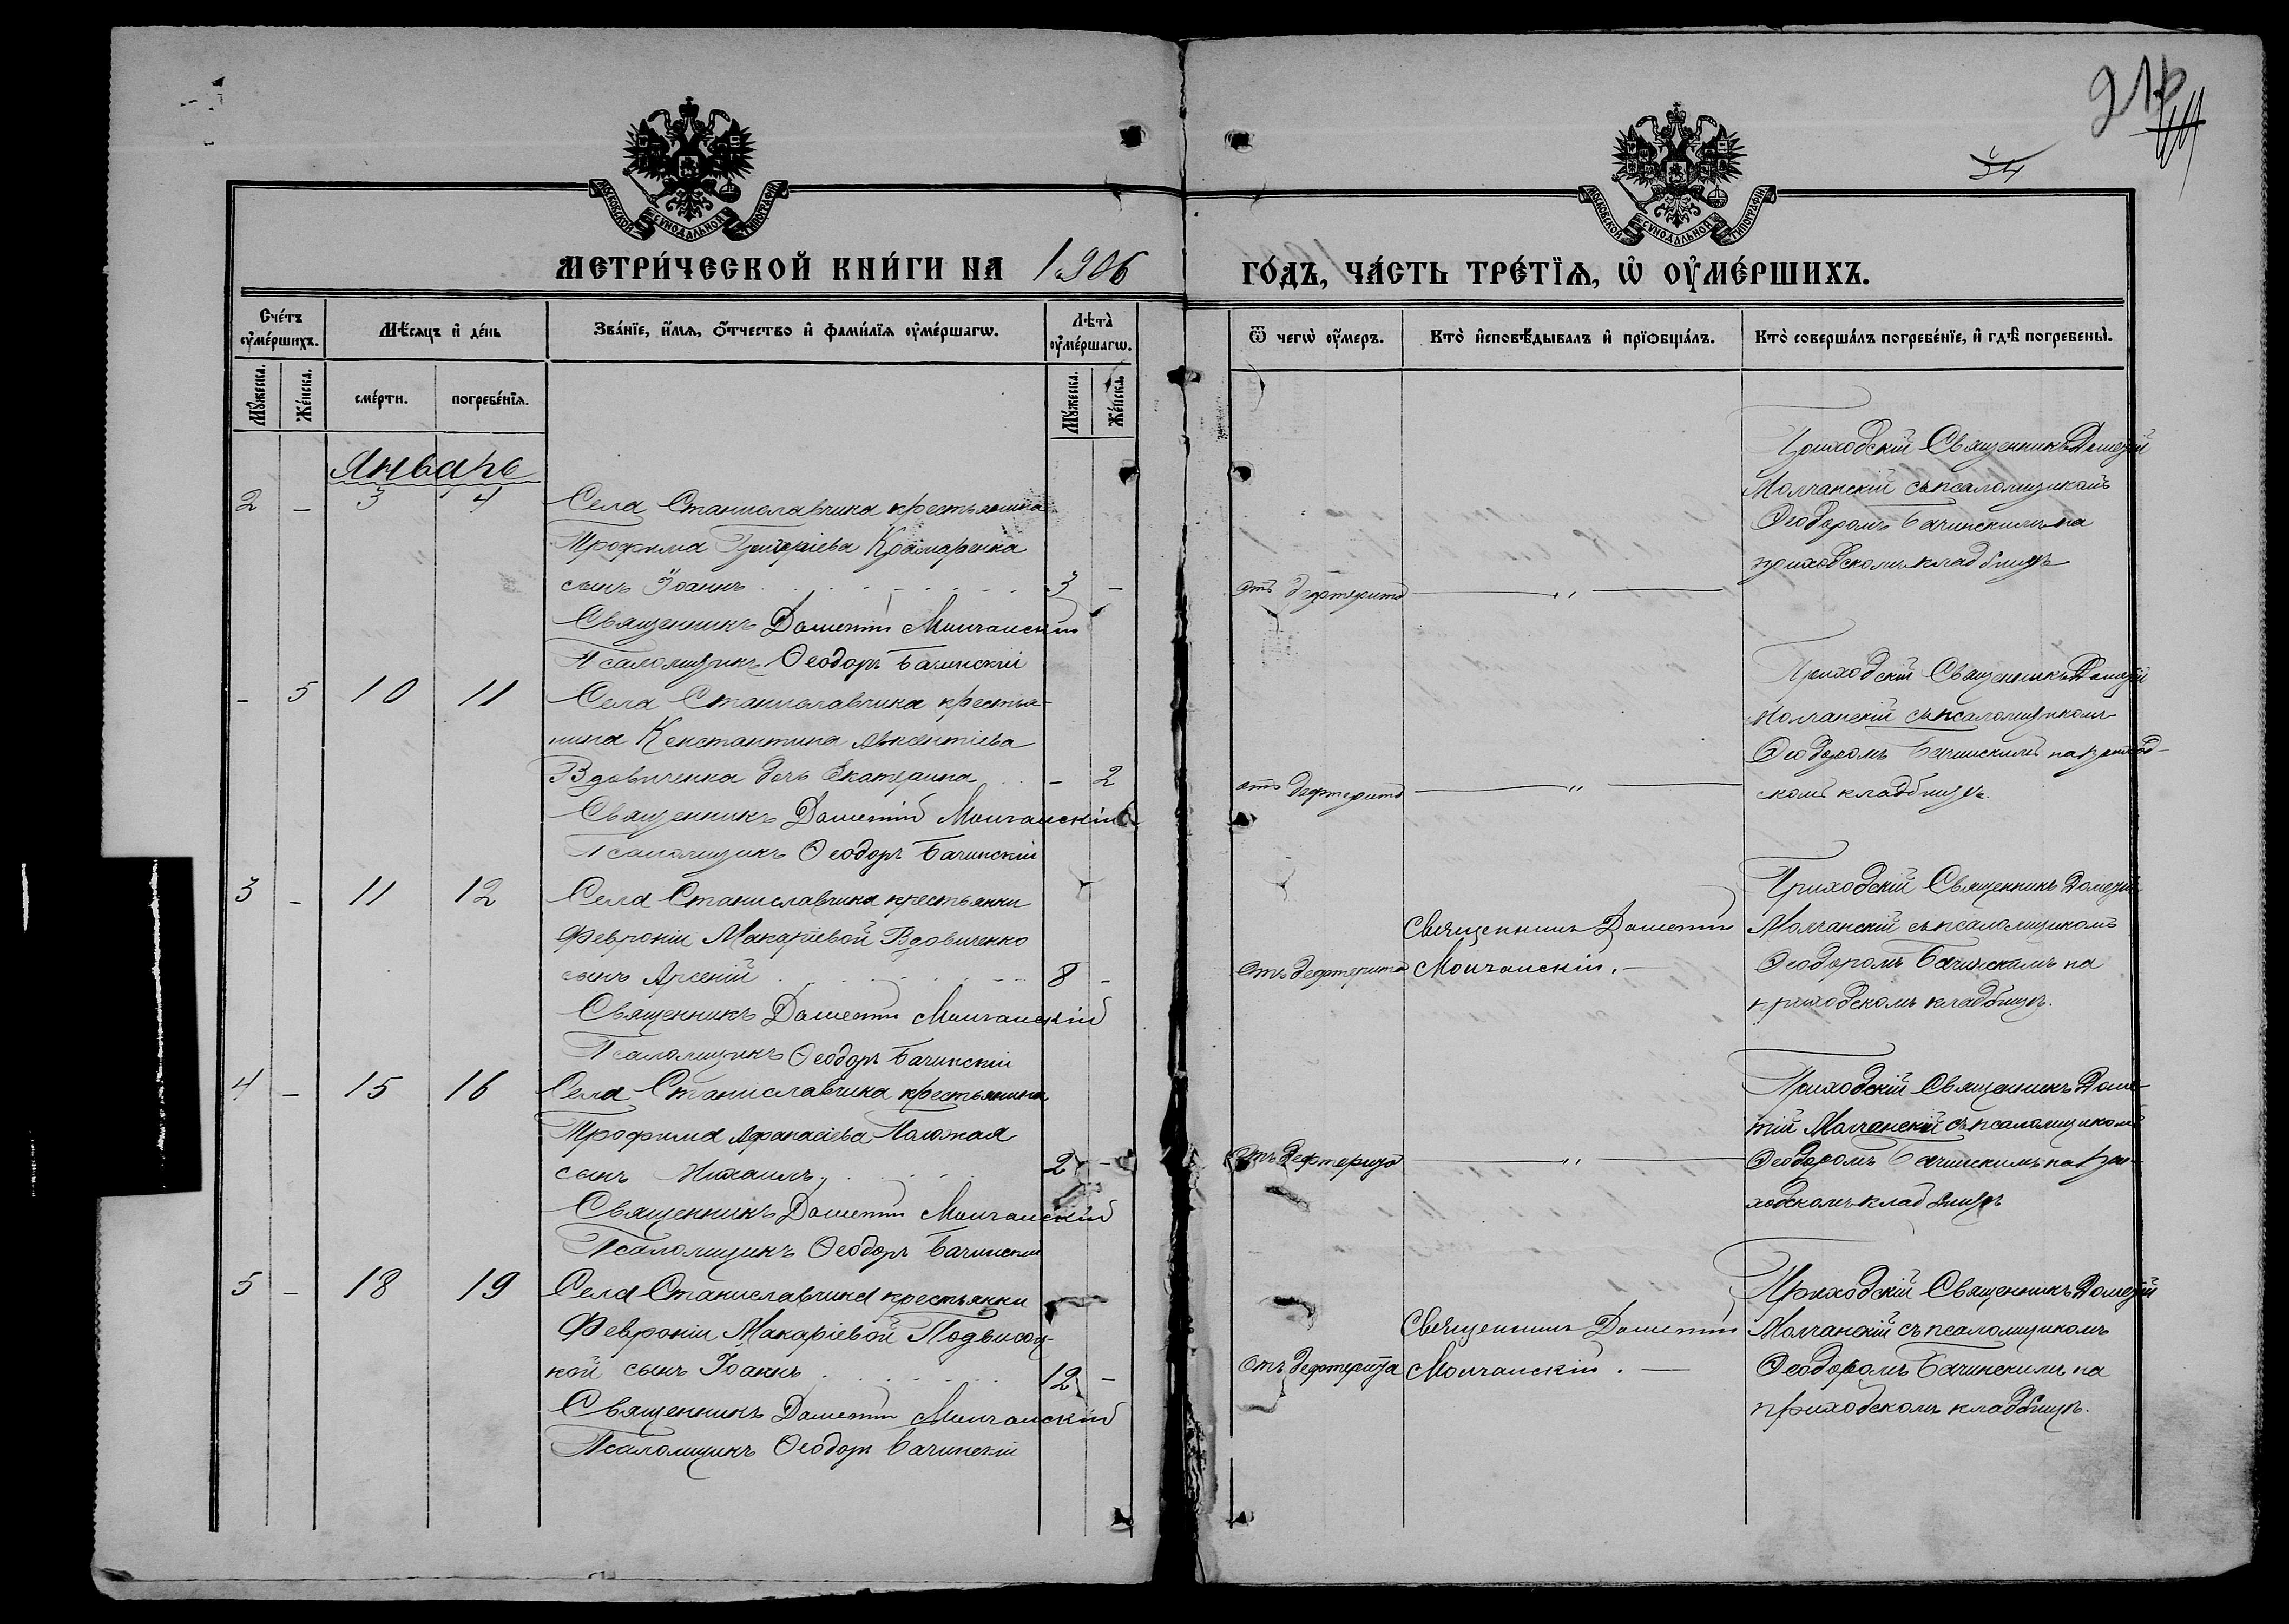 34
МОСКОВСКОЙ СѴНОДАЛЬНОЙ ТИПОГРАФІИ
МОСКОВСКОЙ СѴНОДАЛЬНОЙ ТИПОГРАФІИ
МЕТРИ́ЧЕСКОЙ КНИ́ГИ НА 1906
ГО́ДЪ, ЧА́СТЬ ТРЕ́ТЇѦ, Ѡ҆ ОУ҆МЕ́РШИХЪ.
Сче́тъ оу҆ме́ршихъ.
Мѣ́сѧцъ и҆ де́нь
Зва́нїе, и҆́мѧ, ѻ҆́тчество и҆ фами́лїѧ оу҆ме́ршагѡ.
Лѣ́та оу҆ме́ршагѡ.
Ѿ чегѡ̀ оу҆́меръ.
Кто̀ и҆сповѣ́дывалъ и҆ прїѻбща́лъ.
Кто̀ соверша́лъ погребе́нїе, и҆ гдѣ̀ погребены̀.
Мꙋ́жеска.
Же́нска.
сме́рти.
погребе́нїѧ.
Мꙋ́жеска.
Же́нска.
Январь
2 - 3 4 Села Станиславчика крестьянина
Трофима Григоріева Крамаренка
сынъ Іоаннъ 3 -
Священникъ Дометій Молчанскій
Псаломщикъ Ѳеодоръ Бачинскій
отъ дефтерита
Приходскій Священникъ Дометій
Молчанскій съ псаломщикомъ
Ѳеодоромъ Бачинскимъ на
приходскомъ кладбищѣ
- 5 10 11 Села Станиславчика крестья-
нина Константина Авксентіева
Вдовиченка дочь Екатерина - 2
Священникъ Дометій Молчанскій
Псаломщикъ Ѳеодоръ Бачинскій
отъ дефтерита
Приходскій Священникъ Дометій
Молчанскій съ псаломщикомъ
Ѳеодоромъ Бачинскимъ на приход-
скомъ кладбищѣ.
3 - 11 12 Села Станиславчика крестьянки
Февроніи Макаріевой Вдовиченко
сынъ Арсеній 8 -
Священникъ Дометій Молчанскій
Псаломщикъ Ѳеодоръ Бачинскій
отъ дефтерита
Священникъ Дометій
Молчанскій.
Приходскій Священникъ Дометій
Молчанскій съ псаломщикомъ
Ѳеодоромъ Бачинскимъ на
приходскомъ кладбищѣ.
4 - 15 16 Села Станиславчика крестьянина
Трофима Афанасіева
сынъ Михаилъ 2 -
Священникъ Дометій Молчанскій
Псаломщикъ Ѳеодоръ Бачинскій
отъ дефтерита
Приходскій Священникъ Доме-
тій Молчанскій съ псаломщикомъ
Ѳеодоромъ Бачинскимъ на при-
ходскомъ кладбищѣ
5 - 18 19 Села Станиславчика крестьянки
Февроніи Макаріевой Подвисоц-
кой сынъ Іоаннъ 12 -
Священникъ Дометій Молчанскій
Псаломщикъ Ѳеодоръ Бачинскій
отъ дефтерита
Священникъ Дометій
Молчанскій.
Приходскій Священникъ Дометій
Молчанскій съ псаломщикомъ
Ѳеодоромъ Бачинскимъ на
приходскомъ кладбищѣ.